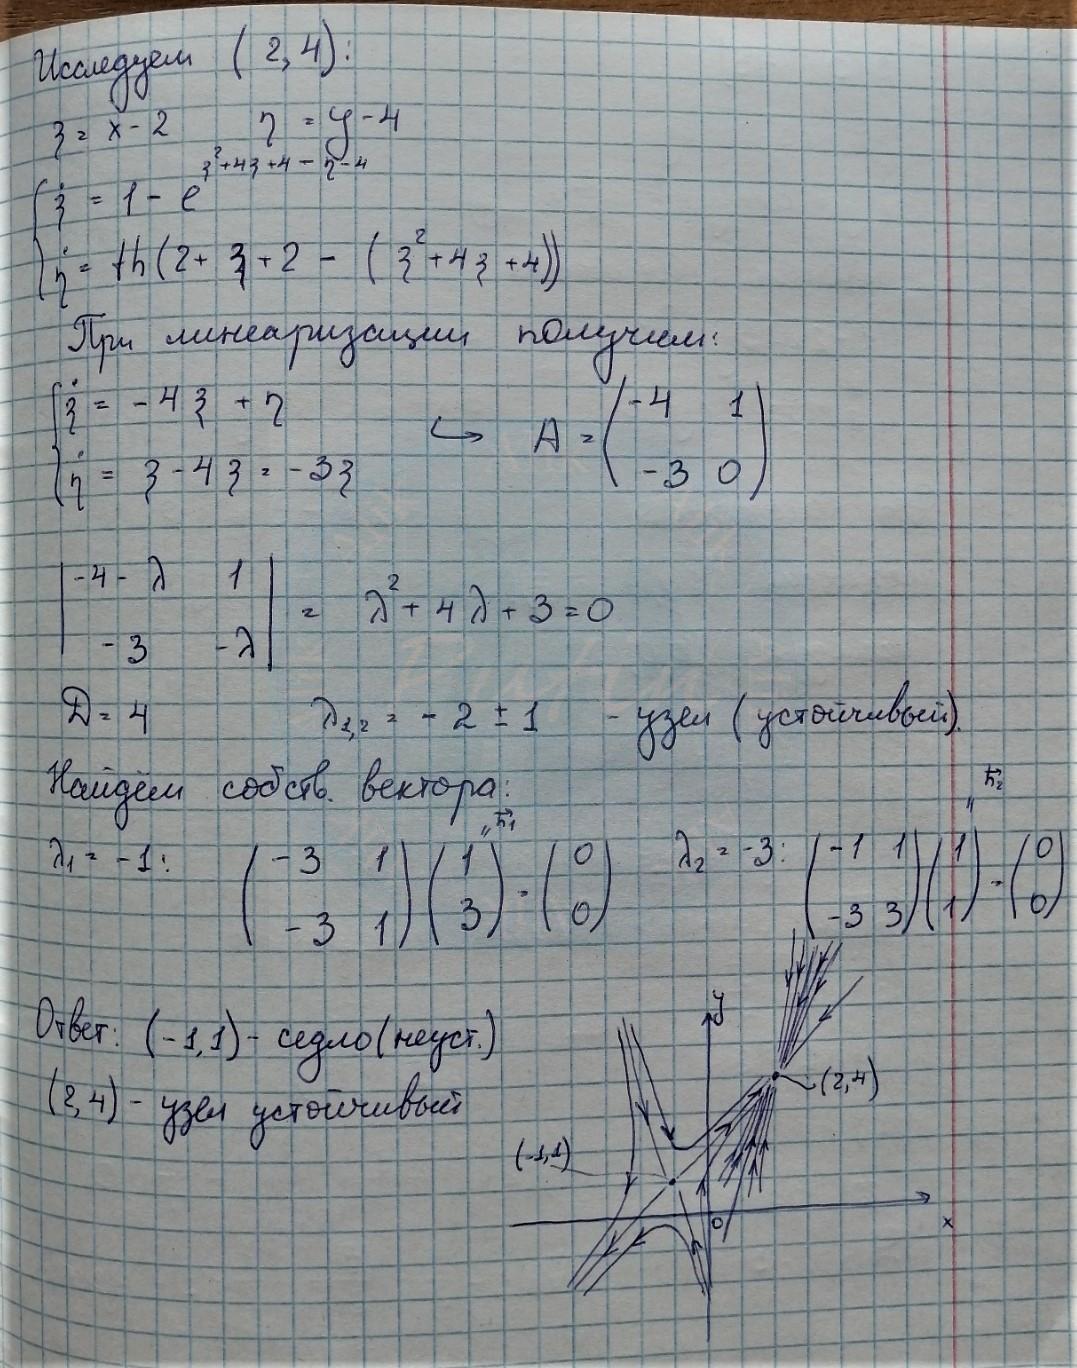 Исследуем (2,4):
ξ = x - 2 η = y - 4
ξ̇ = 1 - e^(ξ² + 4ξ + 4 - η - 4)
η̇ = th(2 + ξ + 2 - (ξ² + 4ξ + 4))
При линеаризации получим:
ξ̇ = -4ξ + η
η̇ = ξ - 4ξ = -3ξ
↪ A = (-4 1
-3 0)
|-4-λ 1
-3 -λ| = λ² + 4λ + 3 = 0
D = 4 λ1,2 = -2 ± 1 - узел (устойчивый).
Найдём собств. вектора:
λ1 = -1: (-3 1
-3 1) (1
3) = (0
0)
"h⃗1
λ2 = -3: (-1 1
-3 3) (1
1) = (0
0)
"h⃗2
Ответ: (-1,1) - седло (неуст.)
(2,4) - узел устойчивый
y
(2,4)
(-1,1)
0
x